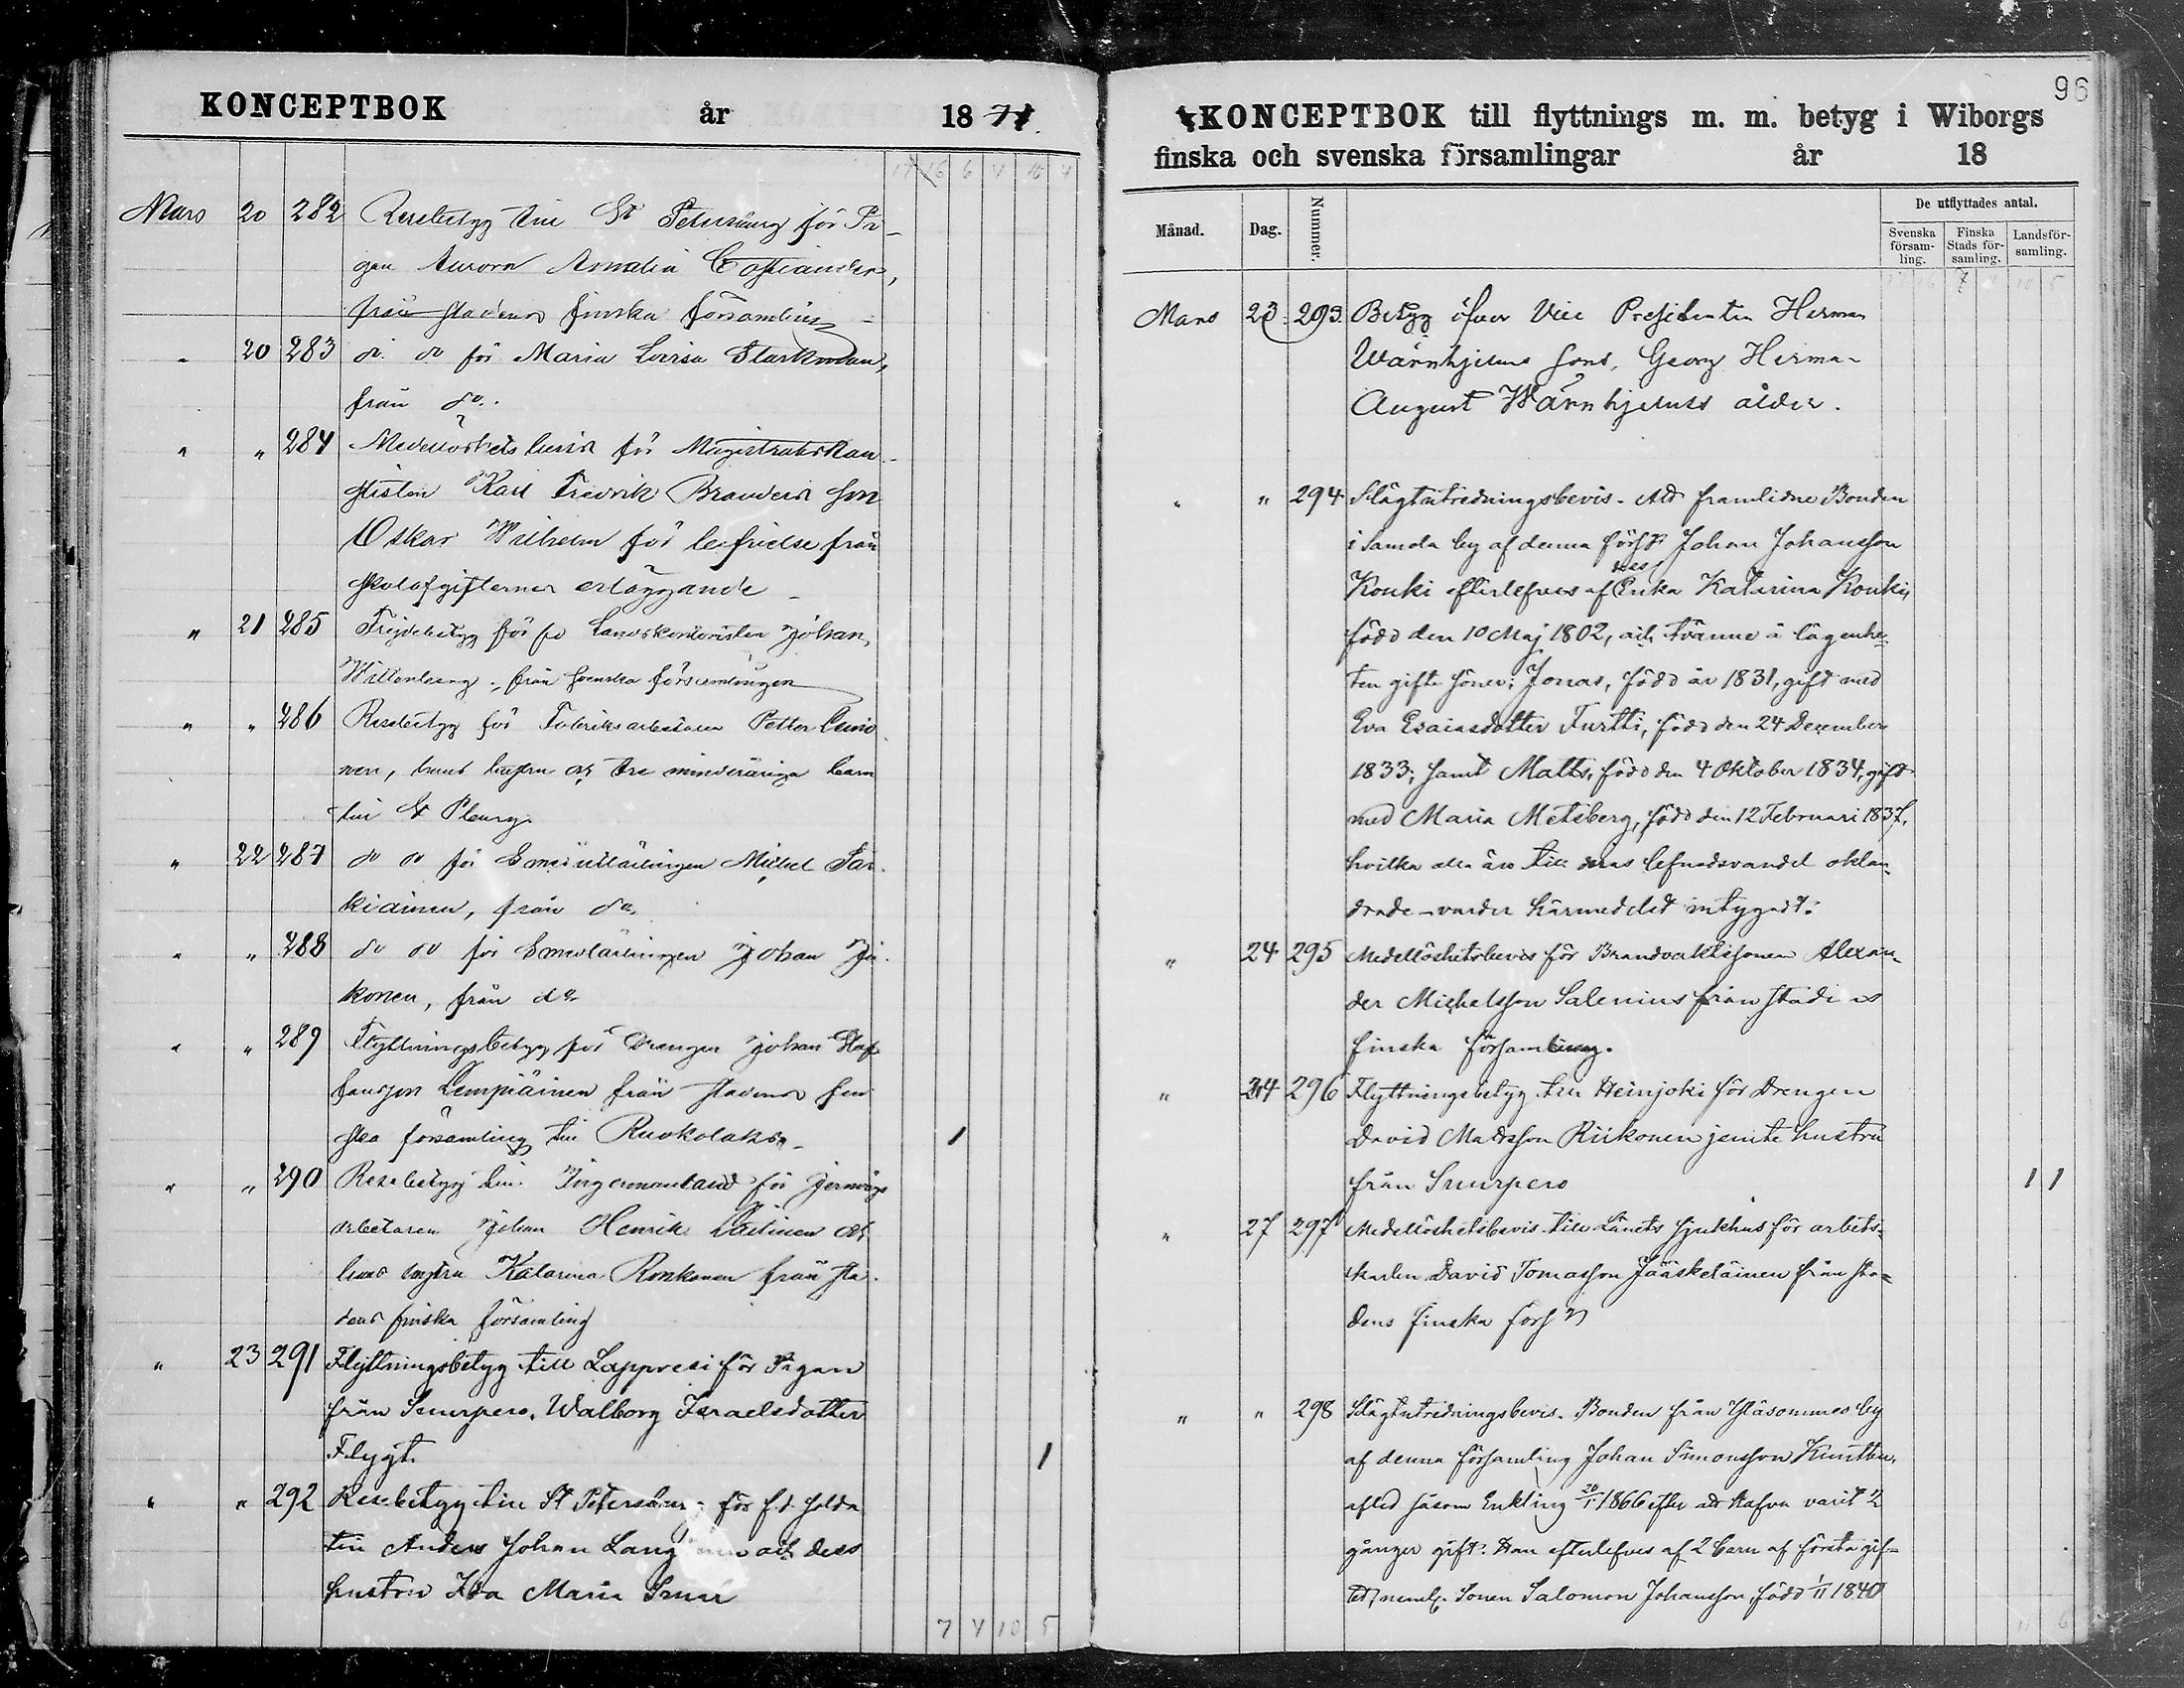 KONCEPTBOK år 1871.
17 16 6 4 10 4
Mars 20 282 Resebetyg till St Petersburg för Pi-
gan Aurora Amalia Costiander,
från stadens finska församling
" 20 283 do do för Maria Lovisa Starkman,
från do.
" " 284 Medellöshetsbevis för Magistratskan-
slisten Karl Fredrik Branders son
Oskar Wilhelm för befrielse från
skolafgifternas erläggande
" 21 285 Frejdebetyg för fd Landskontoristen Johan
Wittenberg, från svenska församlingen
" " 286 Resebetyg för Fabriksarbetaren Petter
nen, hans hustru och tre minderåriga barn
till St Pburg.
" 22 287 do do för Michel Par-
kiainen, från do.
" " 288 do do för Smedlärlingen Johan Jä-
konen, från do
" " 289 Flyttningsbetyg för Drengen Johan Staf-
fansson Lempiäinen från stadens fin
ska församling till Ruokolaks.
1
" " 290 Resebetyg till Ingermanland för Jernvägs
arbetaren Johan Henrik Laitinen och
hans hustru Katarina Ronkanen från sta-
dens finska församling
" 23 291 Flyttningsbetyg till Lappvesi för Pigan
från Sourpero, Walborg Israelsdotter
Flygt. 1
" " 292 Resebetyg till St Petersburg för f.d. Solda
ten Anders Johan Lang och dess
hustru Ida Maria
7 4 10 5
96
KONCEPTBOK till flyttnings m. m. betyg i Wiborgs
finska och svenska församlingar år 18
Månad. Dag. Nummer. De utflyttades antal.
Svenska församling. Finska Stads församling. Landsförsamling.
7 10 5
Mars 23 293. Betyg öfver Vice Presidenten Herman
Wärnhjelms sons, Georg Herman
August Wärnhjelms ålder.
" " 294 Slägtutredningsbevis. Att framlidne Bonden
i Samola by af denna förs:g Johan Johansson
Kouki efterlefves af dess Enka Katarina Kouki,
född den 10 Maj 1802, och tvänne å lägenhe-
ten gifte söner: Jonas, född år 1831, gift med
Eva Esaiasdotter Turtti, född den 24 December
1833; samt Matts, född den 4 Oktober 1834, gift
med Maria Metsberg, född den 12 Februari 1837.
hvilka alla äro till deras lefnadsvandel oklan-
drade – varder härmedelst intygadt.
" 24 295 Medellöshetsbevis för Brandvaktssonen Alexan-
der Michelsson Salenius från stadens
finska församling.
" 24 296 Flyttningsbetyg till Heinjoki för Drengen
David Matsson Riikonen jemte hustru
från Sourpero 1 1
" 27 297 Medellöshetsbevis till Länets sjukhus för arbets-
karlen David Tomasson Jääskeläinen från sta-
dens finska förs:g
" " 298 Slägtutredningsbevis. Bonden från Yläsommee by
af denna församling Johan Simonsson Kunttu,
afled såsom Enkling 20/1 1866 efter att hafva varit 2
gånger gift. Han efterlefves af 2 barn af första gif-
tet, neml. Sonen Salomon Johansson, född 1/11 1840
11 6